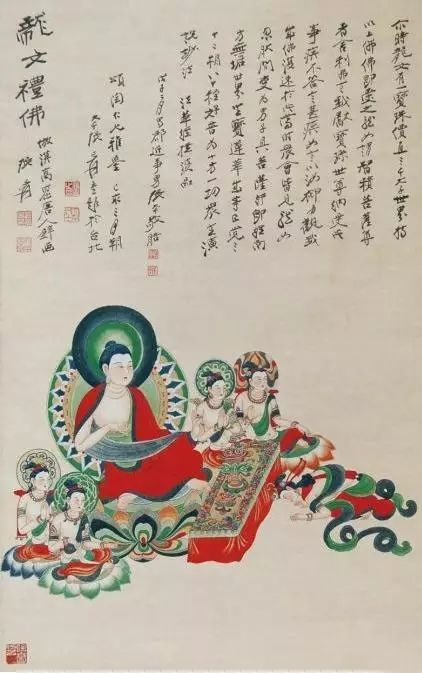 龍女禮佛
撫漠高窟唐人壁画
張爰
尒時龍女有一寶珠價直三千大千世界持
以上佛佛即受之龍女謂智積菩薩尊
者舍利弗言我獻寶珠世尊納受是
事疾不答言甚疾女言以汝神力觀我
成佛復速於此當時眾會皆見龍女
忽然間變為男子具菩薩行即往南
方無垢世界坐寶蓮華成等正覺三
十二相八十種好普為十方一切眾生演
說妙法 法華經提婆品
戊子三月蜀郡近事男張爰敬臨
頌陶仁兄雅鑒 己丑三月朔
大千張爰重題於台北